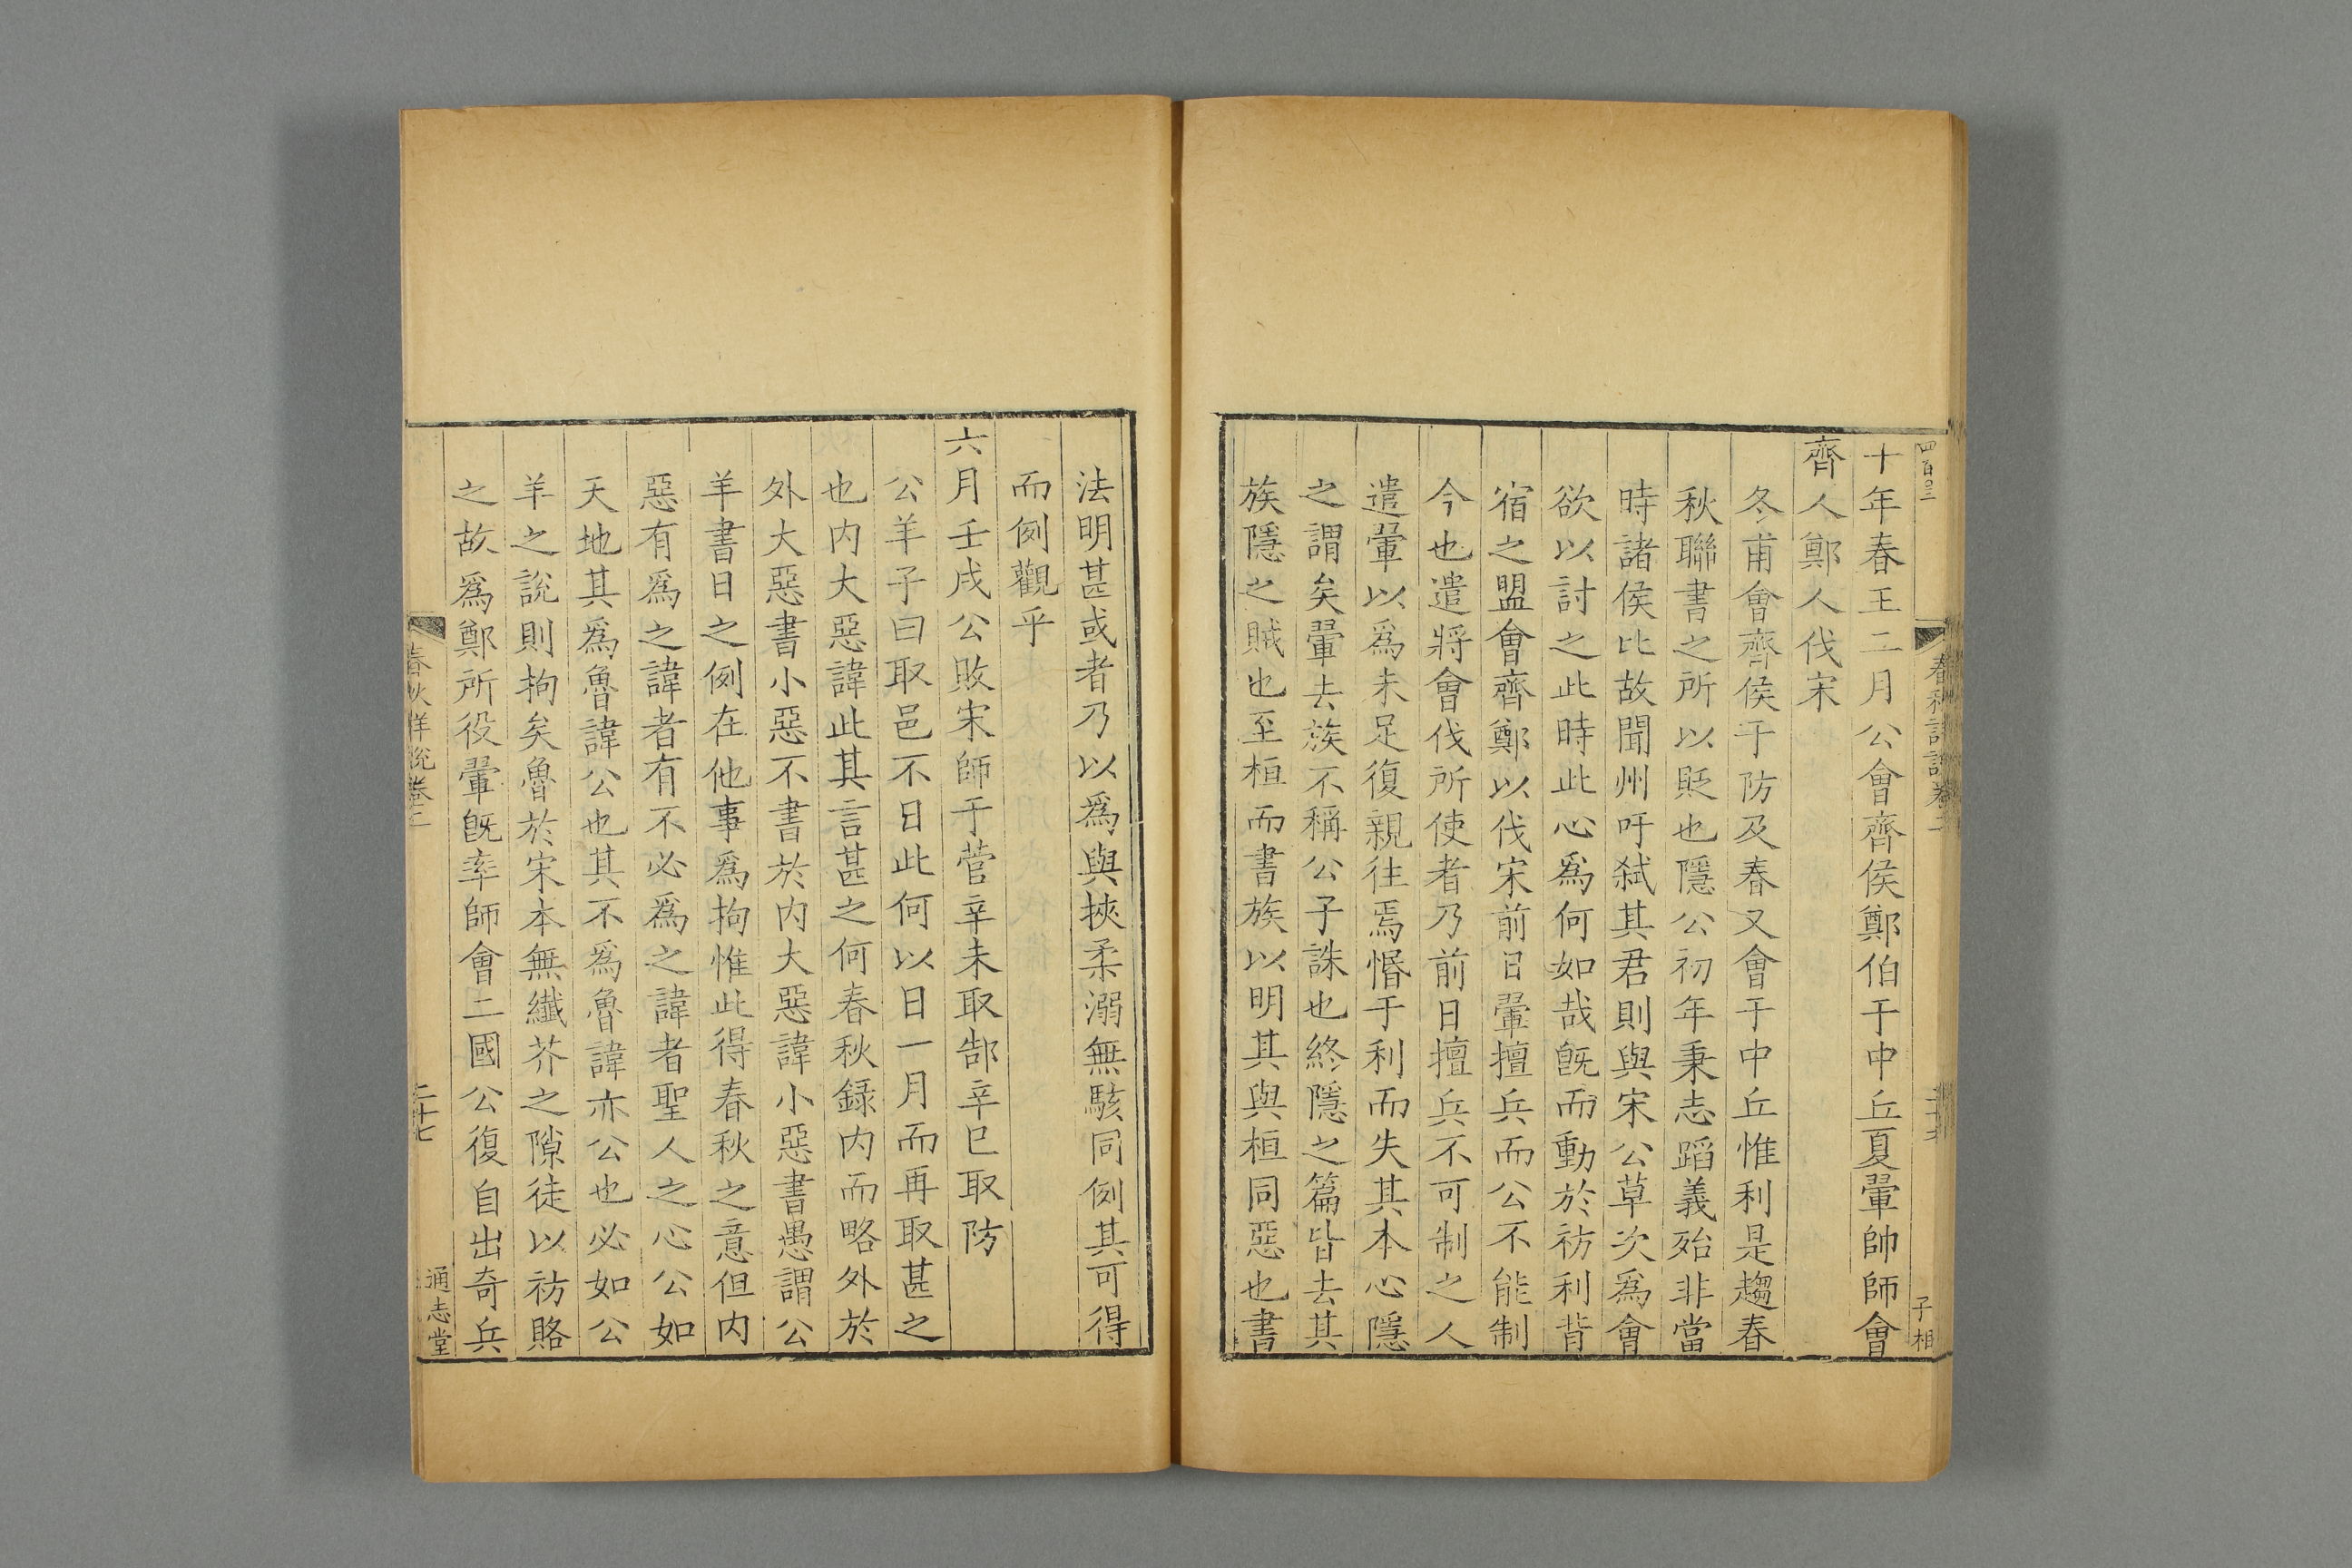 四百〇二
春秋詳說卷二
子相
十年春王二月公會齊侯鄭伯于中丘夏翬帥師會
齊人鄭人伐宋
冬甫會齊侯于防及春又會于中丘惟利是趨春
秋聯書之所以貶也隱公初年秉志蹈義殆非當
時諸侯比故聞州吁弑其君則與宋公草次爲會
欲以討之此時此心爲何如哉旣而動於祊利背
宿之盟會齊鄭以伐宋前日翬擅兵而公不能制
今也遣將會伐所使者乃前日擅兵不可制之人
遣翬以爲未足復親往焉惛于利而失其本心隱
之謂矣翬去族不稱公子誅也終隱之篇皆去其
族隱之賊也至桓而書族以明其與桓同惡也書
法明甚或者乃以爲與挾柔溺無駭同例其可得
而例觀乎
六月壬戌公敗宋師于菅辛未取郜辛巳取防
公羊子曰取邑不日此何以日一月而再取甚之
也内大惡諱此其言甚之何春秋録内而略外於
外大惡書小惡不書於内大惡諱小惡書愚謂公
羊書日之例在他事爲拘惟此得春秋之意但内
惡有爲之諱者有不必爲之諱者聖人之心公如
天地其爲魯諱公也其不爲魯諱亦公也必如公
羊之說則拘矣魯於宋本無纖芥之隙徒以祊賂
之故爲鄭所役翬旣率師會二國公復自出奇兵
春秋詳說卷二
二十七
通志堂